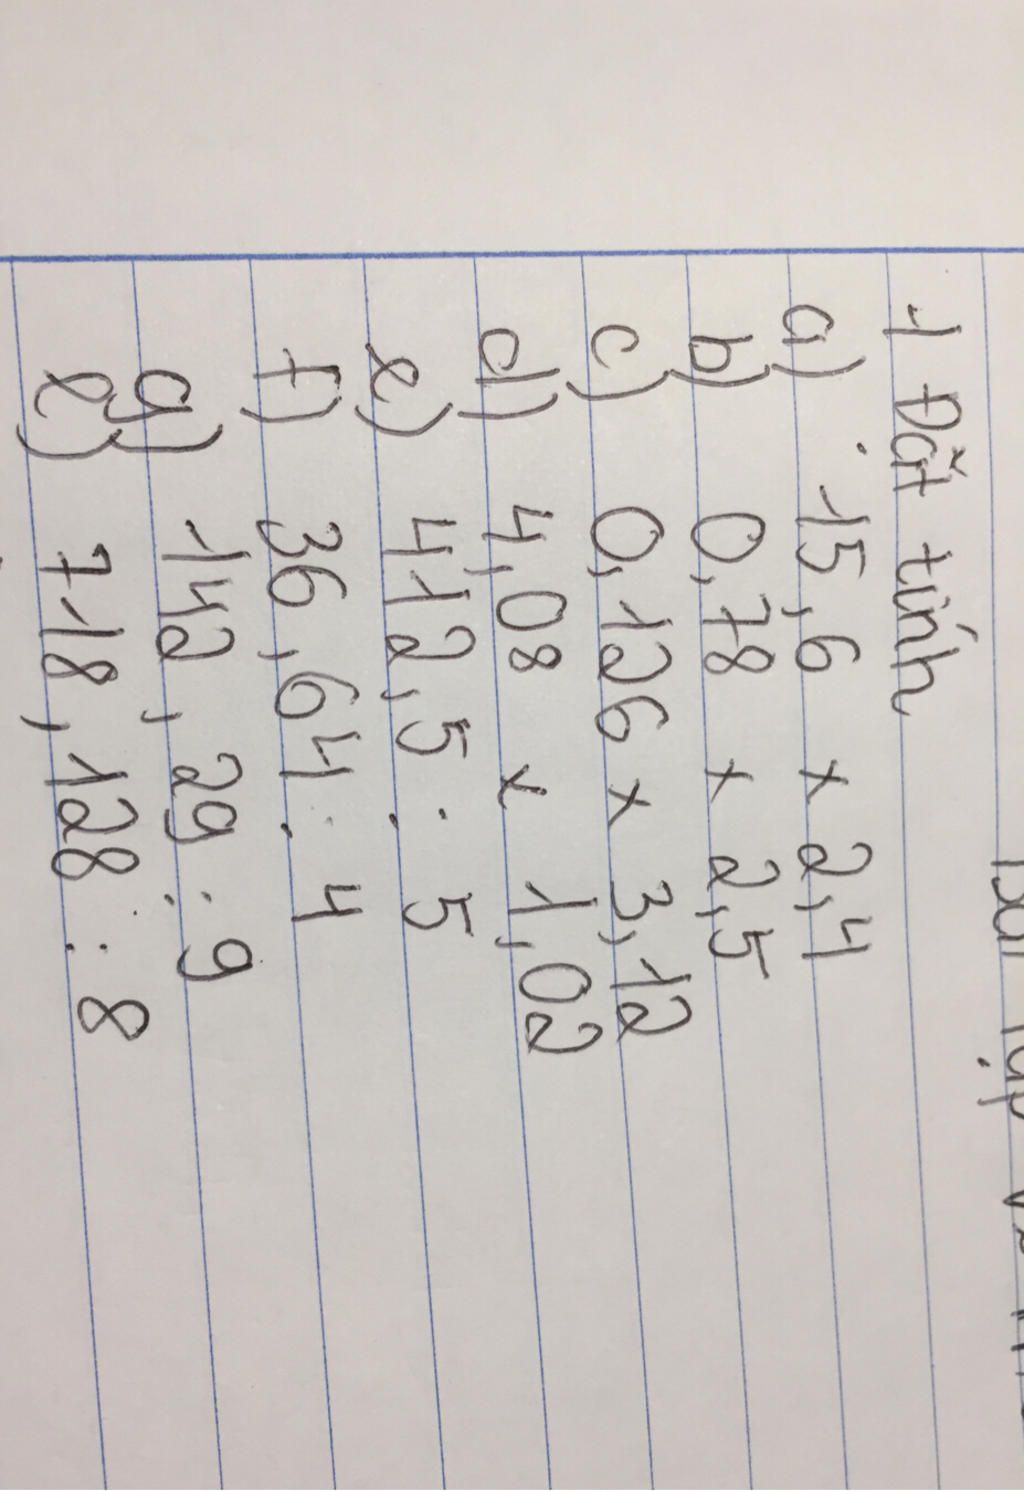 1 Đặt tính
a) 15,6 x 2,4
b) 0,78 x 2,5
c) 0,126 x 3,12
d) 4,08 x 1,02
e) 412,5 : 5
f) 36,64 : 4
g) 142,29 : 9
e) 718,128 : 8